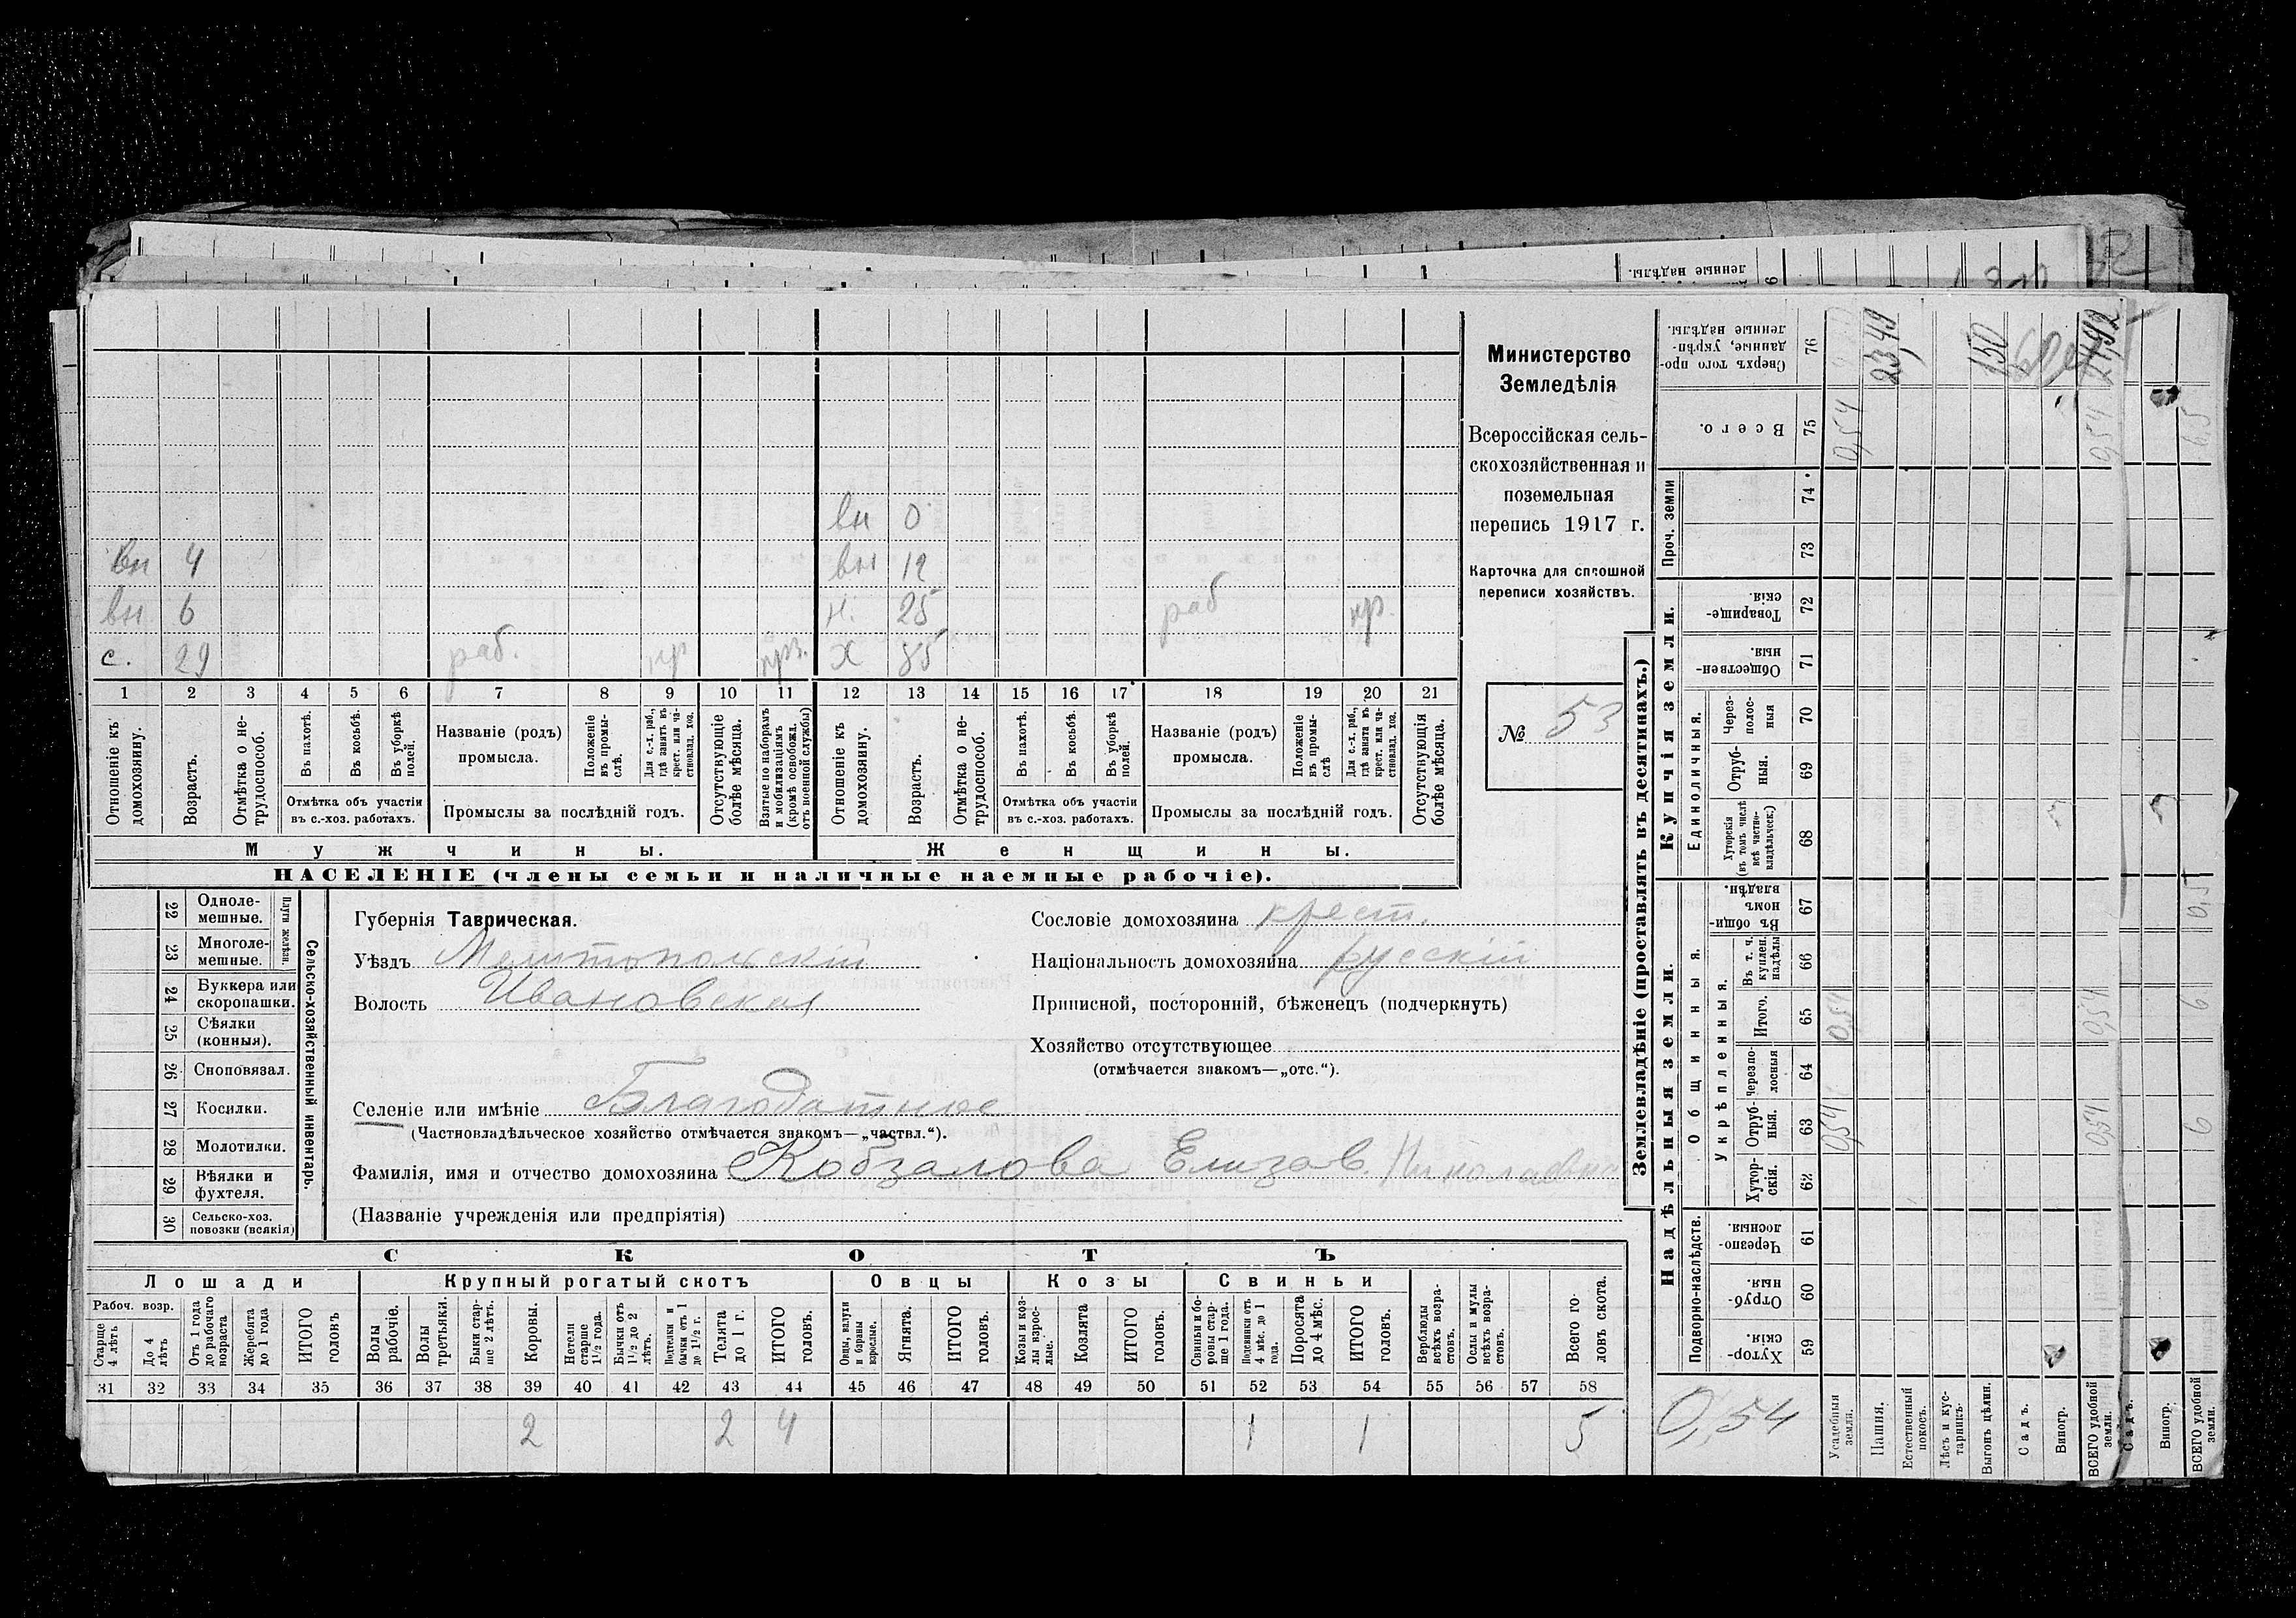 вн 0
вн 4 вн 12
вн 6 н. 25 раб кр.
с. 29 раб. кр Х
1 2 3 4 5 6 7 8 9 10 11 12 13 14 15 16 17 18 19 20 21
Отношеніе къ домохозяину.
Возрастъ.
Отмѣтка о не-
трудоспособ.
Въ пахотѣ.
Въ косьбѣ.
Въ уборкѣ
полей.
Отмѣтка объ участіи
въ с.-хоз. работахъ.
Названіе (родъ)
промысла.
Положеніе
въ промы-
слѣ.
Для с.-х. раб.,
гдѣ занятъ въ
крест. или ча-
стновлад. хоз.
Промыслы за послѣдній годъ.
Отсутствующіе
болѣе мѣсяца.
Взятые по наборамъ
и мобилизаціямъ
(кромѣ освобожд.
отъ военной службы)
Отношеніе къ
домохозяину.
Возрастъ.
Отмѣтка о не-
трудоспособ.
Въ пахотѣ.
Въ косьбѣ.
Въ уборкѣ
полей.
Отмѣтка объ участіи
въ с.-хоз. работахъ.
Названіе (родъ)
промысла.
Положеніе
въ промы-
слѣ
Для с.-х. раб.,
гдѣ занята въ
крест. или ча-
стновлад. хоз.
Промыслы за послѣдній годъ.
Отсутствующія
болѣе мѣсяца.
Мужчины. Женщины.
НАСЕЛЕНІЕ (члены семьи и наличные наемные рабочіе).
Министерство
Земледѣлія
Всероссійская сель-
скохозяйственная и
поземельная
перепись 1917 г.
Карточка для сплошной
переписи хозяйствъ.
№ 53
Сельско-хозяйственный инвентарь.
Плуги желѣзн.
22 Одноле-
мешные.
23 Многоле-
мешные.
24 Буккера или
скоропашки.
25 Сѣялки
(конныя).
26 Сноповязал.
27 Косилки.
28 Молотилки.
29 Вѣялки и
фухтеля.
30 Сельско-хоз.
повозки (всякія)
Губернія Таврическая.
Уѣздъ Мелитопольскій
Волость Ивановская
Сословіе домохозяина крест.
Національность домохозяина русскій
Приписной, посторонній, бѣженецъ (подчеркнуть)
Хозяйство отсутствующее
(отмѣчается знакомъ—„отс.“).
Селеніе или имѣніе Благодатное
(Частновладѣльческое хозяйство отмѣчается знакомъ—„частвл.“).
Фамилія, имя и отчество домохозяина Кобзалова Елизав. Николаевна
(Названіе учрежденія или предпріятія)
СКОТЪ
Лошади Крупный рогатый скотъ Овцы Козы Свиньи
Рабоч. возр.
Старше
4 лѣтъ
До 4
лѣтъ
Отъ 1 года
до рабочаго
возраста
Жеребята
до 1 года
ИТОГО
головъ
Волы
рабочіе.
Волы
третьяки.
Быки стар-
ше 2 лѣтъ.
Коровы.
Нетели
старше
1 1/2 года.
Бычки отъ
1 1/2 до 2
лѣтъ.
Подтелки и
бычки отъ 1
до 1 1/2 г.
Телята
до 1 г.
ИТОГО
головъ.
Овцы, валухи
и бараны
взрослые.
Ягнята.
ИТОГО
головъ.
Козы и коз-
лы взрос-
лые.
Козлята
ИТОГО
головъ.
Свиньи и бо-
ровы стар-
ше 1 года.
Подсвинки отъ
4 мѣс. до 1
года.
Поросята
до 4 мѣс.
ИТОГО
головъ.
Верблюды
всѣхъ возра-
стовъ.
Ослы и мулы
всѣхъ возра-
стовъ.
Всего го-
ловъ скота.
31 32 33 34 35 36 37 38 39 40 41 42 43 44 45 46 47 48 49 50 51 52 53 54 55 56 57 58
2 2 4 1 1 5
Землевладѣніе (проставлять въ десятинахъ.)
Надѣльныя земли. Купчія земли.
Подворно-наслѣдств.
Общинныя.
Укрѣпленныя.
Единоличныя.
Проч. земли
Сверхъ того про-
данные, укрѣп-
ленные надѣлы. 76
Всего. 75
74
73
Товарище-
скія. 72
Обществен-
ныя. 71
Черезъ-
полос-
ныя 70
Отруб-
ныя. 69
Хуторскія
(въ томъ числѣ
всѣ частно-
владѣльческ.) 68
Въ общи-
номъ
владѣн. 67
Въ т. ч.
куплен.
надѣлы 66
Итого. 65
Черезпо-
лосныя 64
Отруб-
ныя. 63
Хутор-
скія. 62
Черезпо-
лосныя. 61
Отруб-
ныя. 60
Хутор-
скія. 59
0,54
Усадебныя
земли. 0,54 0,54 0,54
Пашня. 23,49
Естественный
покосъ.
Лѣсъ и кус-
тарникъ.
Выгонъ цѣлин. 150
Садъ.
Виногр.
ВСЕГО удобной
земли. 0,54 0,54 0,54
Садъ.
Виногр.
ВСЕГО удобной
земли. 6 6 0,5 6,5
ленные надѣлы.